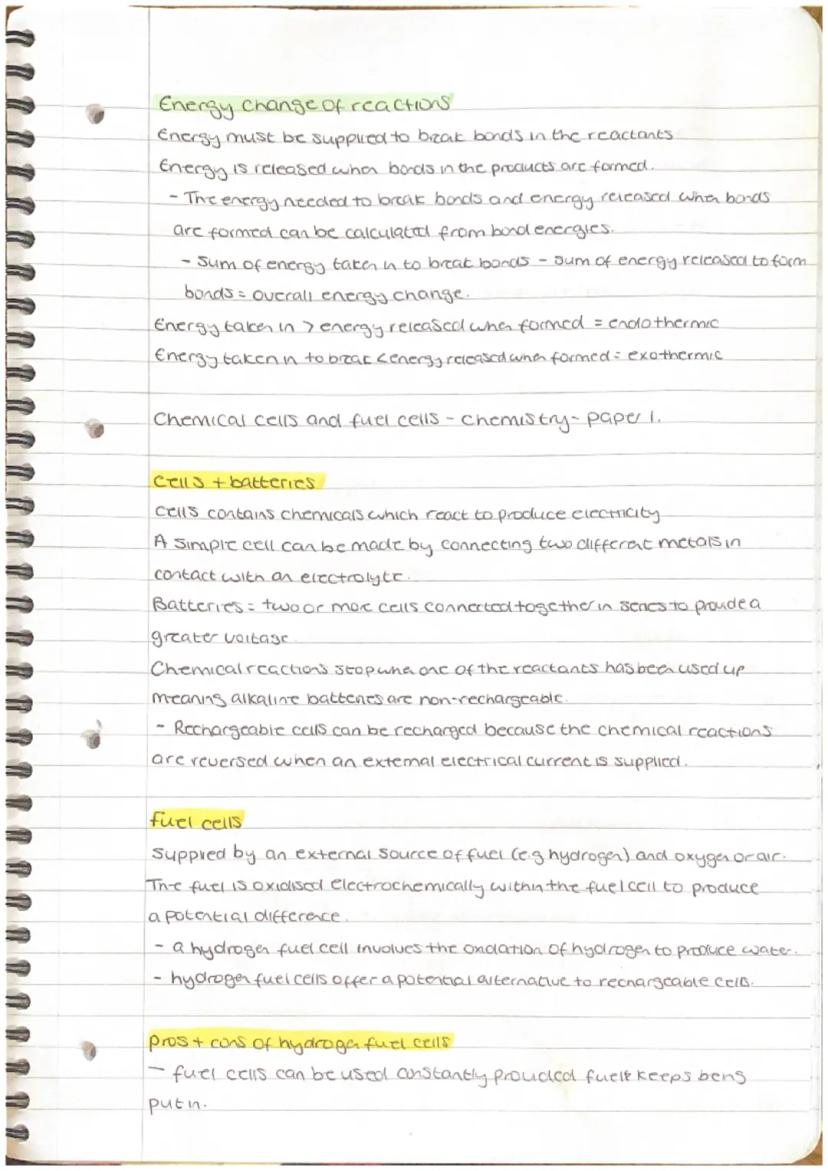 Energy change of reactions
Energy must be supplied to break bonds in the reactants
Energy is released when bonds in the products are formed.
- The energy needed to break bonds and energy released when bonds
are formed can be calculated from bond energies.
- Sum of energy taken in to break bonds - sum of energy released to form
bonds = overall energy change.
Energy taken in > energy released when formed = endothermic
Energy taken in to break < energy released when formed = exothermic
Chemical cells and fuel cells - Chemistry - paper 1.
Cells + batteries
Cells contains chemicals which react to produce electricity
A simple cell can be made by connecting two different metals in
contact with an electrolyte.
Batteries = two or more cells connected together in series to provide a
greater voltage.
Chemical reactions stop when one of the reactants has been used up
meaning alkaline batteries are non-rechargeable.
- Rechargeable cells can be recharged because the chemical reactions
are reversed when an external electrical current is supplied.
fuel cells
Supplied by an external source of fuel (e.g hydrogen) and oxygen or air.
The fuel is oxidised electrochemically within the fuel cell to produce
a potential difference.
- a hydrogen fuel cell involves the oxidation of hydrogen to produce water.
- hydrogen fuel cells offer a potential alternative to rechargeable cells.
pros + cons of hydrogen fuel cells
- fuel cells can be used constantly provided keeps being
put in.